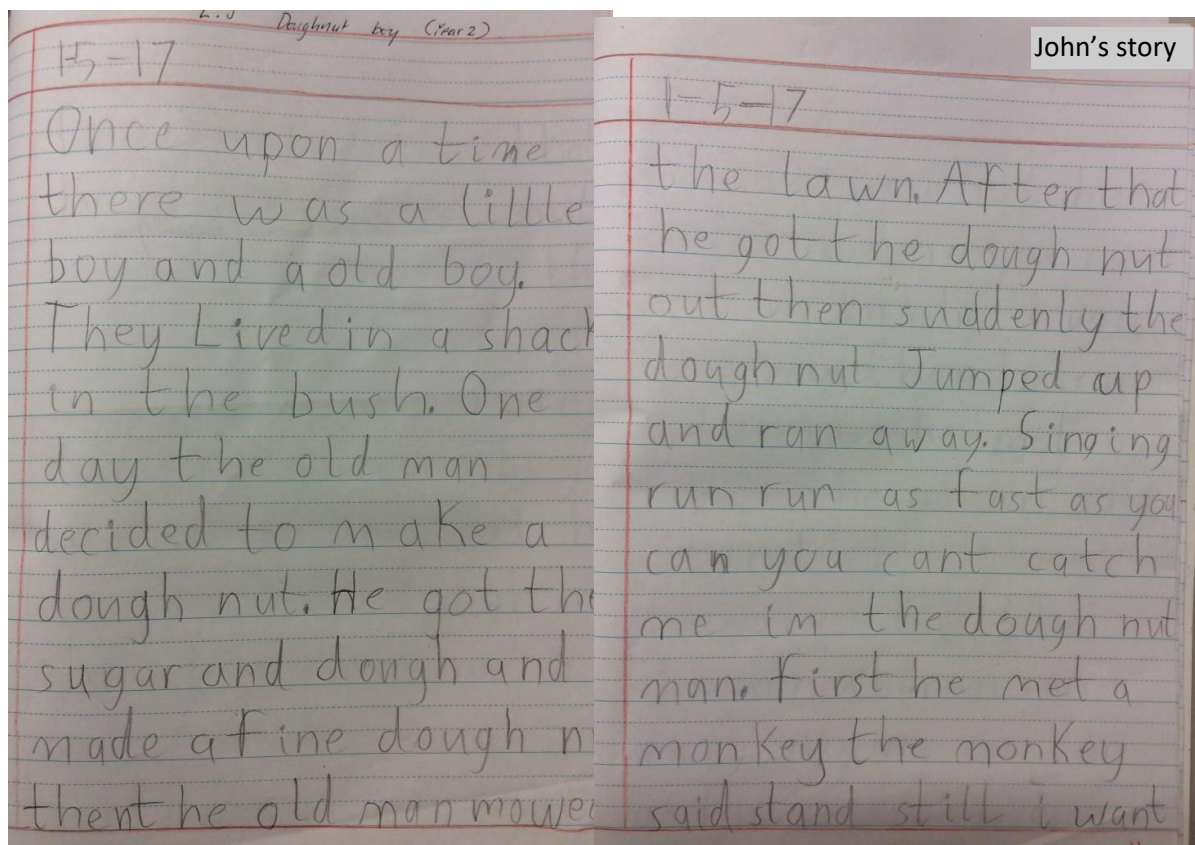 Doughnut boy (Year 2)
1-5-17
Once upon a time
there was a lillle
boy and a old boy.
They Lived in a shack
in the bush. One
day the old man
decided to make a
dough nut. He got the
sugar and dough and
made a fine dough n
thent he old man mowe
John's story
1-5-17
the lawn. After that
he got the dough nut
out then suddenly the
dough nut Jumped up
and ran away. Singing
run run as fast as you
can you cant catch
me im the dough nut
man. First he met a
monkey the monkey
said stand still i want